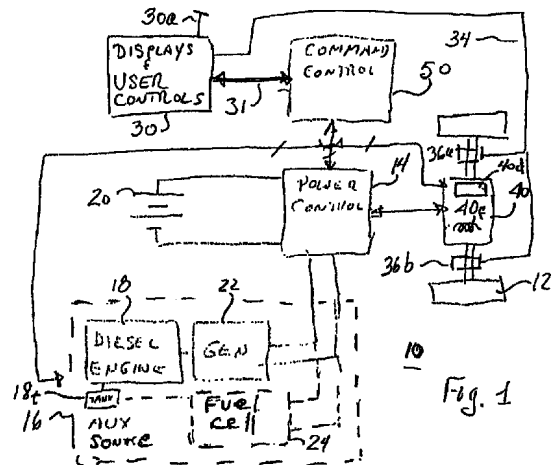 30a
DISPLAYS
&
USER
CONTROLS
30
31
COMMAND
CONTROL
50
34
36a
40d
40
40e
36b
12
20
POWER
CONTROL
14
18
DIESEL
ENGINE
22
GEN
18t
TANK
16
AUX
SOURCE
FUEL
CELL
24
10
Fig. 1